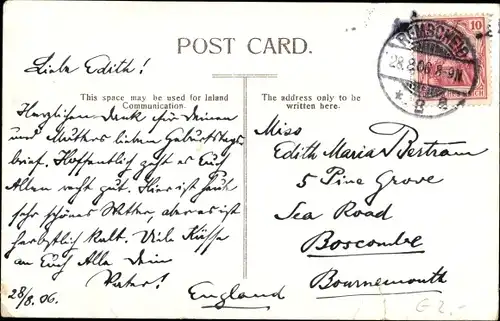 POST CARD.
Liebe Edith!
This space may be used for Inland
Communication.
The address only to be
written here.
Herzlichen Dank für Deinen
und Mutters lieben Geburtstags-
brief. Hoffentlich geht es Euch
Allen recht gut. Hier ist heute
sehr schönes Wetter, aber es ist
herbstlich kalt. Viele Küsse
an Euch Alle Dein
Vater!
28/8. 06.
Miss
Edith Maria Bertram
5 Pine Grove
Sea Road
Boscombe
Bournemouth
England
REMSCHEID
28.8.06.8-9N.
10
£2.-